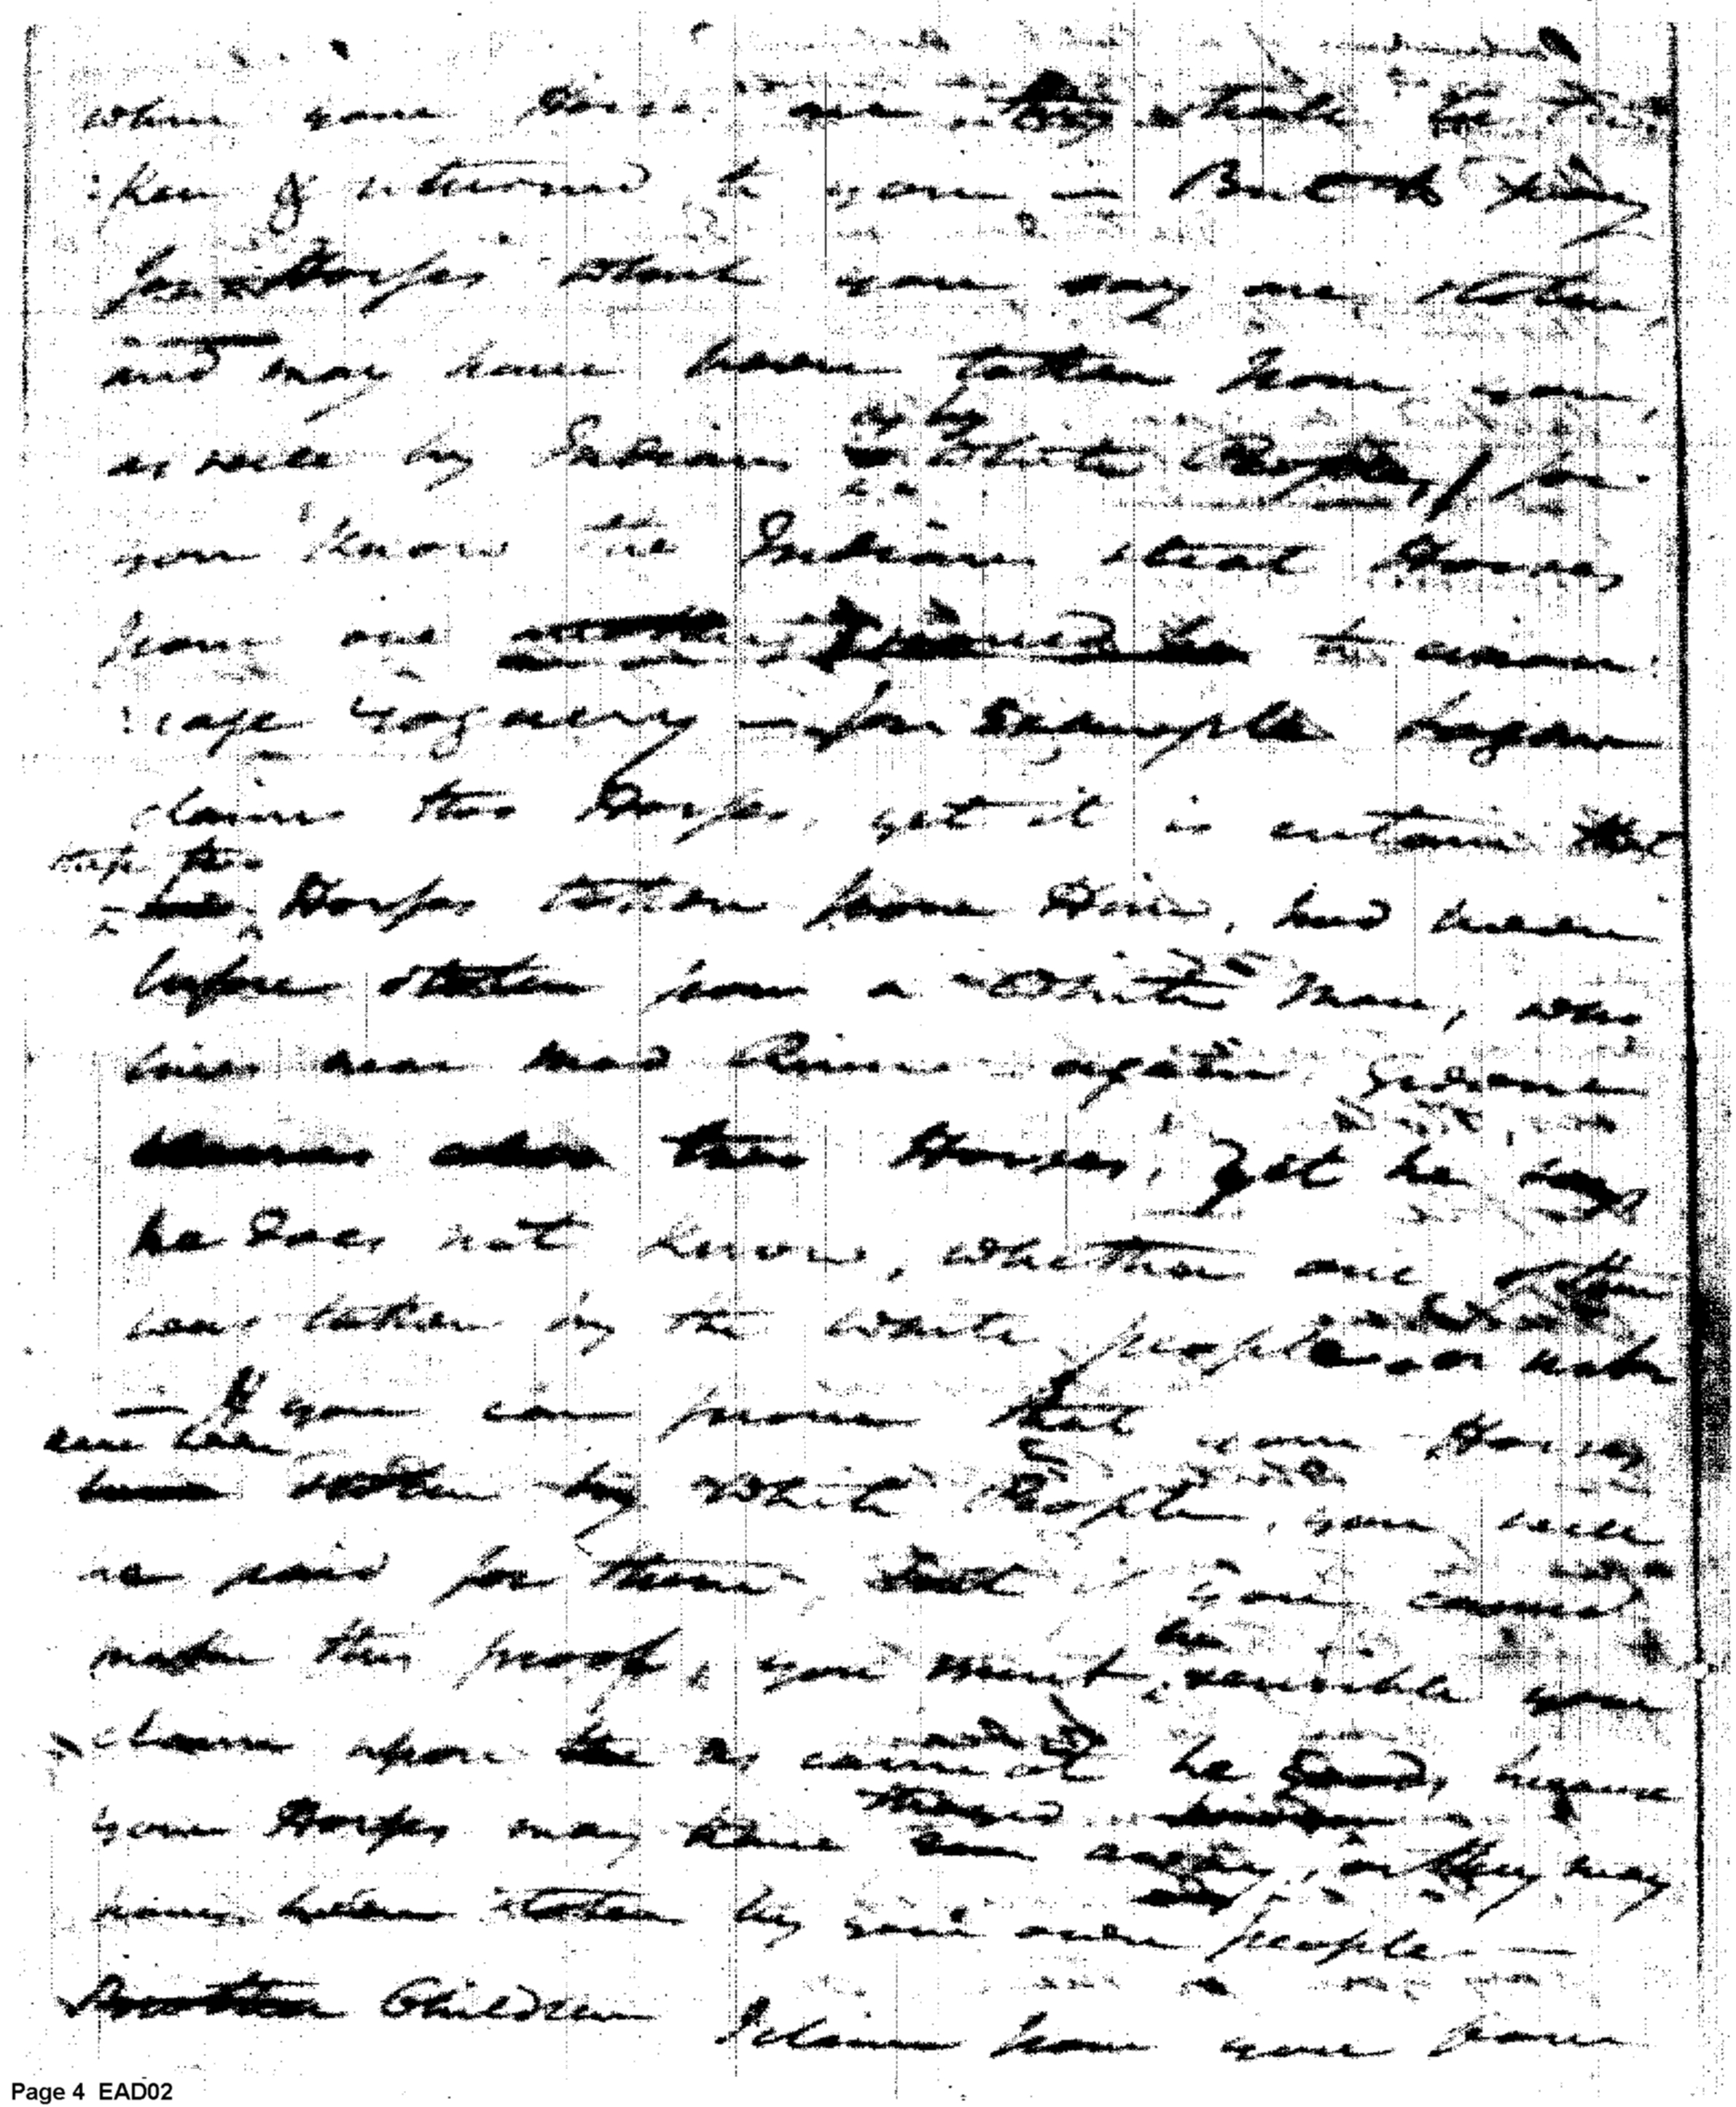 when your Horses are they shall be ta-
:ken & returned to you — But
for Horses which you say are stolen,
and may have been taken from you,
as by
as well by Indians White People, for
you know the Indians steal Horses
from one another to
roguery — for Example Logan
claims two Horses, yet it is certain that
these two
Horses taken from Him, had been
before stolen from a White Man, who
lives near Mad River again
claims also two Horses, yet he says
he does not know, whether one of them
was taken by the white people or not
— If you can prove that your Horses
have been
stolen by White People, you will
be paid for them, but if you cannot
make this proof, you must be sensible your
claim upon us cannot be good, because
your Horses may have away, or they may
have been stolen by your own people —
Children I claim from you four
Page 4 EAD02